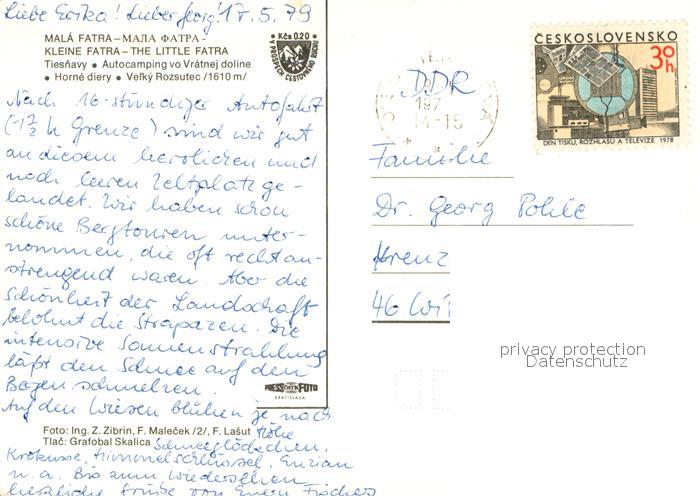 Liebe Erika! Lieber Georg! 17.5.79
MALÁ FATRA – МАЛА ФАТРА -
KLEINE FATRA – THE LITTLE FATRA
Tiesňavy • Autocamping vo Vrátnej doline
• Horné diery • Veľký Rozsutec /1610 m/
Kčs 0.20
V PROSPECH CESTOVNÉHO RUCHU
Nach 16-stündiger Autofahrt
(1 1/2 h Grenze) sind wir gut
an diesem herrlichen und
noch leeren Zeltplatz ge-
landet. Wir haben schon
schöne Bergtouren unter-
nommen, die oft recht an-
strengend waren. Aber die
Schönheit der Landschaft
belohnt die Strapazen. Die
intensive Sonnenstrahlung
läßt den Schnee auf den
Bergen schmelzen.
Auf den Wiesen blühen je nach
Höhe
Schneeglöckchen,
Krokusse, Himmelschlüssel, Enzian
u. a. Bis zum Wiedersehen
herzliche Grüße von Euern Fischers
PRESSFOTO
BRATISLAVA
Foto: Ing. Z. Zibrin, F. Maleček /2/, F. Lašut
Tlač: Grafobal Skalica
ČESKOSLOVENSKO
30h
DEN TISKU, ROZHLASU A TELEVIZE 1978
197
14-15
DDR
Familie
Dr. Georg Pohle
Krenz
46 Wit
privacy protection
Datenschutz